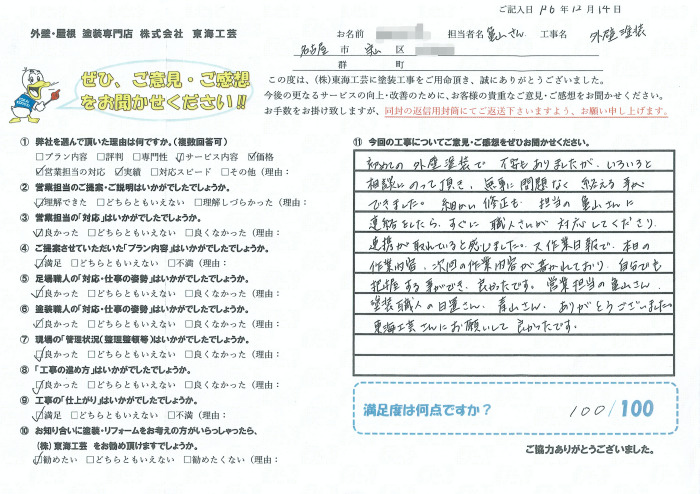 ご記入日 R6 年 12 月 14 日
外壁・屋根 塗装専門店 株式会社 東海工芸
お名前 担当者名 亀山さん 工事名 外壁塗装
名古屋 市 区
郡 町
ぜひ、ご意見・ご感想
をお聞かせください!!
この度は、(株)東海工芸に塗装工事をご用命頂き、誠にありがとうございました。
今後の更なるサービスの向上・改善のために、お客様の貴重なご意見・ご感想をお聞かせください。
お手数をお掛け致しますが、同封の返信用封筒にてご返送下さいますよう、お願い申し上げます。
① 弊社を選んで頂いた理由は何ですか。(複数回答可)
□プラン内容 □評判 □専門性 ☑サービス内容 ☑価格
☑営業担当の対応 ☑実績 □対応スピード □その他(理由:
② 営業担当のご提案・ご説明はいかがでしたでしょうか。
☑理解できた □どちらともいえない □理解しづらかった(理由:
③ 営業担当の「対応」はいかがでしたでしょうか。
☑良かった □どちらともいえない □良くなかった(理由:
④ ご提案させていただいた「プラン内容」はいかがでしたでしょうか。
☑満足 □どちらともいえない □不満(理由:
⑤ 足場職人の「対応・仕事の姿勢」はいかがでしたでしょうか。
☑良かった □どちらともいえない □良くなかった(理由:
⑥ 塗装職人の「対応・仕事の姿勢」はいかがでしたでしょうか。
☑良かった □どちらともいえない □良くなかった(理由:
⑦ 現場の「管理状況(整理整頓等)」はいかがでしたでしょうか。
☑良かった □どちらともいえない □良くなかった(理由:
⑧ 「工事の進め方」はいかがでしたでしょうか。
☑良かった □どちらともいえない □良くなかった(理由:
⑨ 工事の「仕上がり」はいかがでしたでしょうか。
☑満足 □どちらともいえない □不満(理由:
⑩ お知り合いに塗装・リフォームをお考えの方がいらっしゃったら、
(株)東海工芸 をお勧め頂けますでしょうか。
☑勧めたい □どちらともいえない □勧めたくない(理由:
⑪ 今回の工事についてご意見・ご感想をぜひお聞かせください。
初めての外壁塗装で 不安もありましたが、いろいろと
相談にのって頂き、無事に問題なく 終える事が
できました。細かい修正も 担当の亀山さんに
連絡をしたら、すぐに 職人さんが 対応してくださり
連携が取れていると感じました。又作業日報で、本日の
作業内容、次回の作業内容が書かれており、自分でも
把握する事ができ、良かったです。営業担当の亀山さん、
塗装職人の日置さん、青山さん、ありがとうございました。
東海工芸さんにお願いして 良かったです。
満足度は何点ですか? 100/100
ご協力ありがとうございました。